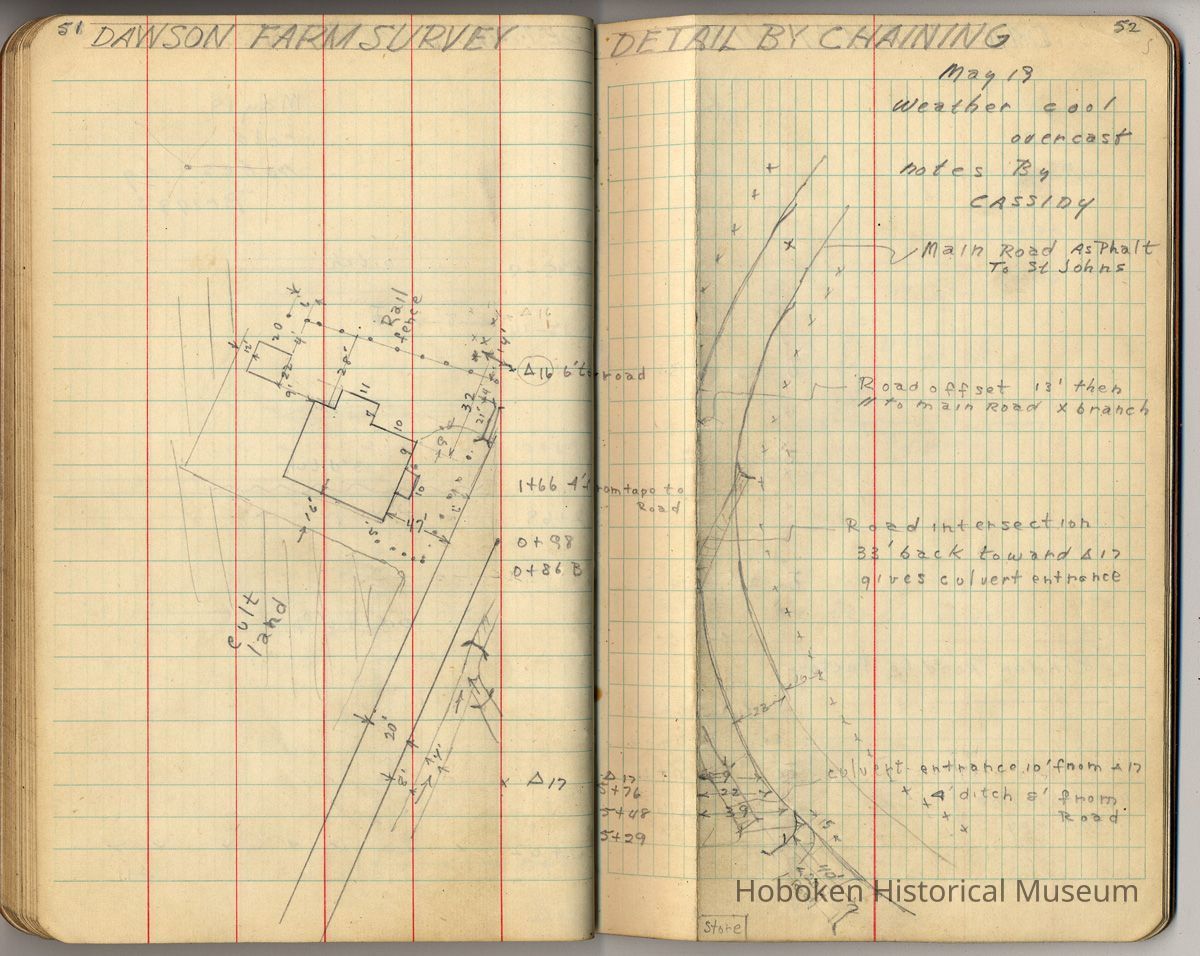 51
DAWSON FARM SURVEY
DETAIL BY CHAINING
52
May 19
Weather cool
overcast
notes By
CASSIDY
Main Road Asphalt
To St Johns
Rail
fence
20
4'
12'
22
9'
28'
11
10
9
10
32
21'
47'
5'
16'
Δ16 6' to road
Road offset 13' then
// to main Road x branch
1+66 4' from tape to
Road
0+98
0+86 B
Road intersection
33' back toward Δ17
gives culvert entrance
cult
land
20'
8'
4'
Δ17
Δ17
5+76
5+48
5+29
22
culvert entrance 10' from Δ17
4' ditch 8' from
Road
15
store
Hoboken Historical Museum